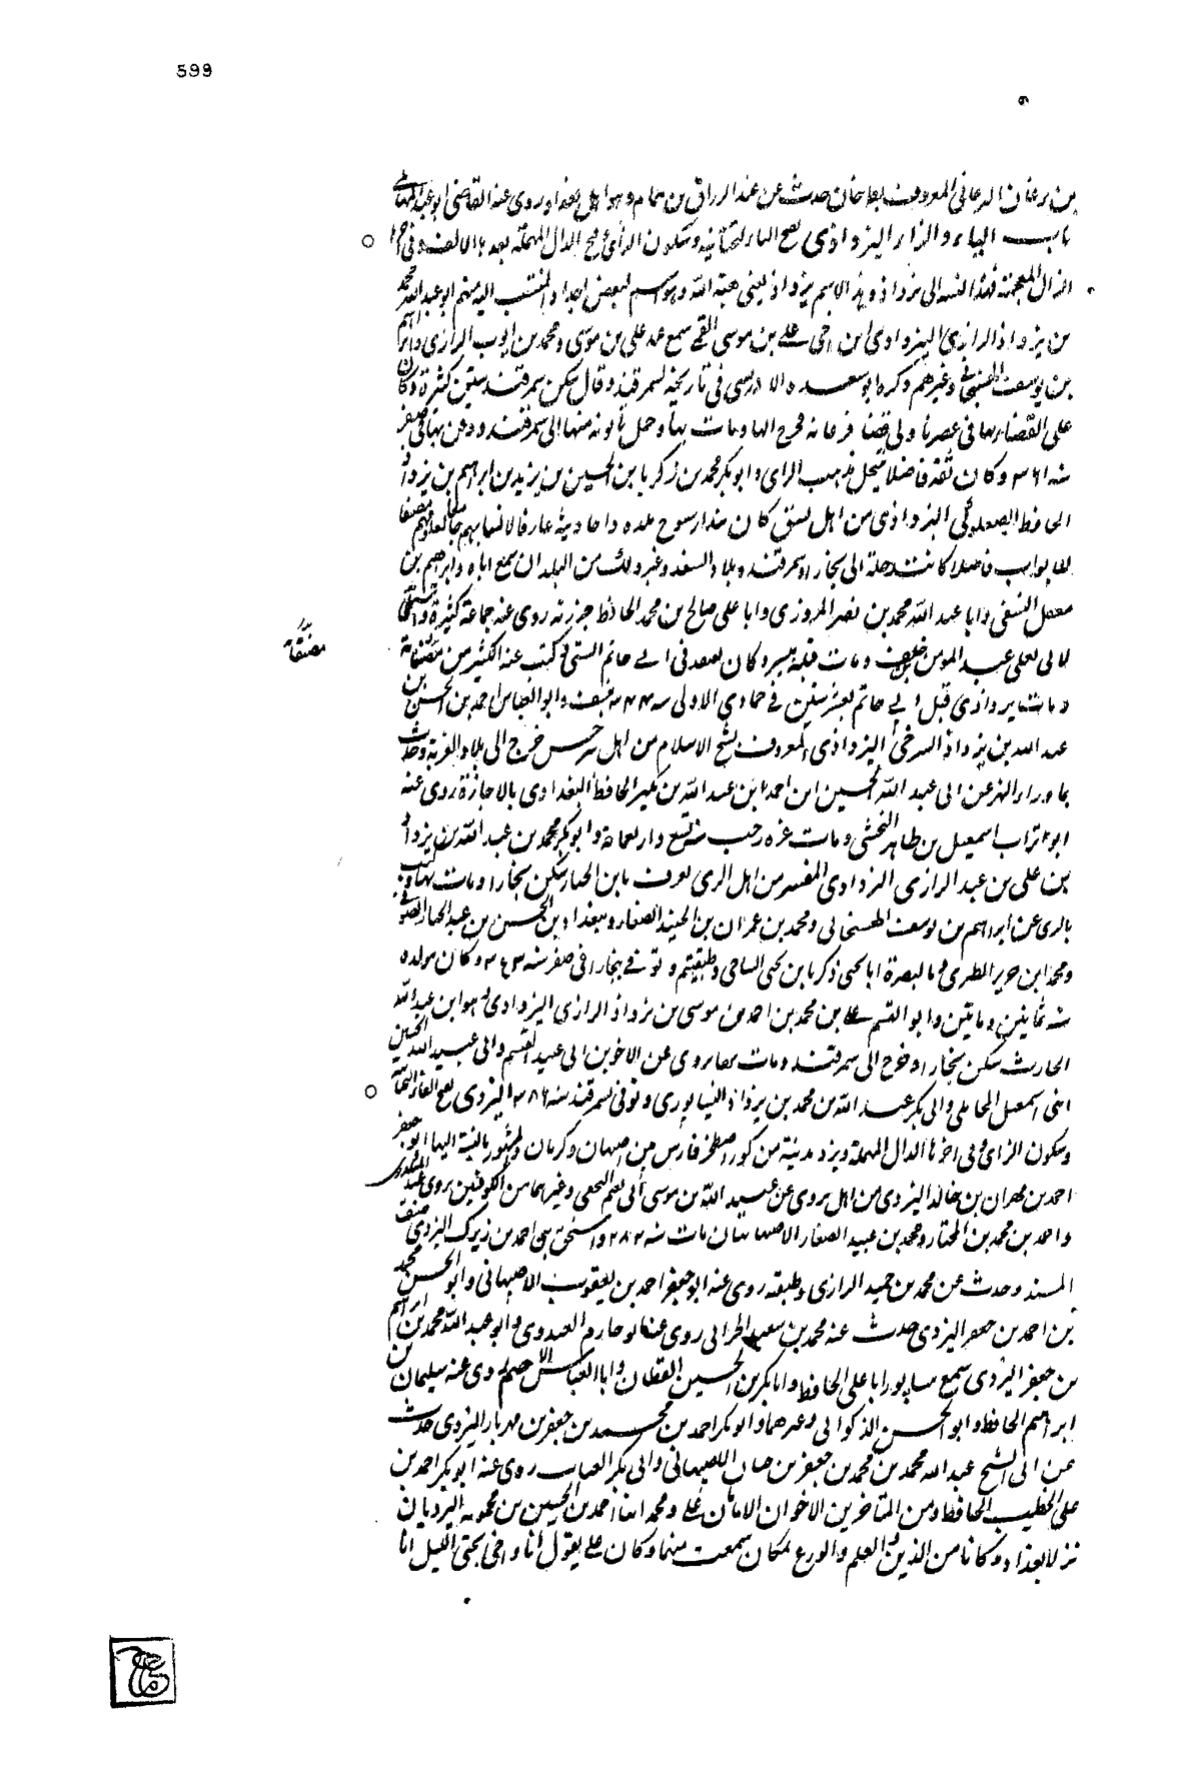 599
٩
بن يرغان الرعانى المعروف حدث عن عبد الرزاق بن همام وهو من اهل بغداد روى عنه القاضى ابو عبد الله
باب الياء والزاء اليزداذى بفتح الياء التحتانية وسكون الزاى وفتح الدال المهملة بعدها الالف وفى اخرها
الذال المعجمة هذه النسبة الى يزداذ وهذا الاسم يزداذ يعنى هبة الله وهو اسم لبعض اجداد المنتسب اليه منهم ابو عبد الله محمد
بن يزداذ الرازى اليزداذى ابن اخى على بن موسى القمى سمع عمه على بن موسى ومحمد بن ايوب الرازى وابراهيم
بن يوسف الهسنجانى وغيرهم ذكره ابو سعد الادريسى فى تاريخه لسمرقند وقال سكن سمرقند سنين كثيرة وكان
على القضاء بها فى عصرنا ولى قضا فرغانة فخرج اليها ومات بها وحمل تابوته منها الى سمرقند ودفن بها فى صفر
سنه ٣٦١ وكان ثقة فاضلا ينتحل مذهب الراى وابو بكر محمد بن زكريا بن الحسين بن يزيد بن ابراهيم بن يزداذ
الحافظ اليزداذى من اهل نسف كان
للابواب فاضلا كانت رحلته الى بخارا وسمرقند وبلاد السغد وغير ذلك من البلدان سمع اباه وابرهيم بن
معقل النسفى وابا عبد الله محمد بن نصر المروزى وابا على صالح بن محمد الحافظ جزرة روى عنه جماعة كثيرة
لابى يعلى عبد المومن بن خلف ومات قبله بيسير وكان ابى حاتم البستى كتب عنه الكثير من مصنفاته
مصنفاته
ومات اليزداذى قبل ابى حاتم بعشر سنين فى جمادى الاولى سنه ٣٤٤ بنسف وابو العباس احمد بن الحسن بن
عبد الله بن يزداذ السرخسى اليزداذى المعروف بشيخ الاسلام من اهل سرخس خرج الى بلاد الغربة وحدث
بما وراء النهر عن ابى عبد الله الحسين ابن احمد ابن عبد الله بن بكير الحافظ البغدادى بالاجازة روى عنه
ابو تراب اسمعيل بن طاهر النخشبى ومات غرة رجب سنة تسع واربعمائة وابو بكر محمد بن عبد الله بن يزداذ
بن على بن عبد الرازى اليزداذى المفسر من اهل الرى يعرف بابن الخباز سكن بخارا ومات بها كتب
بالرى عن ابراهيم بن يوسف الهسنجانى ومحمد بن عمران بن الجنيد الصفار وببغداد بن الحسن بن عبد الجبار الصوفى
ومحمد ابن جرير الطبرى وبالبصرة ابا يحيى زكريا بن يحيى الساجى وطبقتهم وتوفى بخارا فى صفر سنه ٣٦٣ وكان مولده
سنه ثمانين ومائتين وابو القسم على بن محمد بن احمد بن موسى بن يزداذ الرازى اليزداذى وهو ابن عبد الله
الحارث سكن بخارا وخرج الى سمرقند ومات بها روى عن الاخوين ابى عبيد القسم وابى عبيد الله الحسين
ابنى اسمعيل المحاملى وابى بكر عبد الله بن محمد بن يزداذ النيسابورى وتوفى بسمرقند سنه ٣٨٦ اليزدى بفتح الياء التحتانية
وسكون الزاى وفى اخرها الدال المهملة ويزد مدينة من كور اصطخر فارس بين اصبهان وكرمان والمشهور بالنسبة اليها ابو جعفر
احمد بن مهران بن خالد اليزدى من اهل يروى عن عبيد الله بن موسى ابى نعيم النخعى وغيرهما من الكوفيين روى عنه
واحمد بن محمد بن المختار ومحمد بن عبيد الصفار الاصبهانيان مات سنه ٢٨٢ واسحق بن احمد بن زيرك اليزدى صنف
المسند وحدث عن محمد بن حميد الرازى وطبقته روى عنه ابو جعفر احمد بن يعقوب الاصبهانى وابو الحسن محمد
بن احمد بن جعفر اليزدى حدث عنه محمد بن سعيد الحرانى روى عنه ابو حازم العبدوى وابو عبد الله محمد بن ابراهيم
بن جعفر اليزدى سمع بنيسابور ابا على الحافظ وابا بكر بن الحسين القطان وابا العباس الاصم روى عنه سليمان بن
ابراهيم الحافظ وابو الحسن الذكوانى وغيرهما وابو بكر احمد بن محمد بن جعفر بن مهريار اليزدى حدث
عن ابى الشيخ عبد الله محمد بن محمد بن جعفر بن حيان الاصبهانى وابى بكر القباب روى عنه ابو بكر احمد بن
على الخطيب الحافظ ومن المتاخرين الاخوان الامامان على ومحمد ابنا احمد بن الحسين بن محمويه اليزديان
نزلا بغداد وكانا من الدين والعلم والورع بمكان سمعت منهما وكان على يقول انا واخى يجتى الليل انا